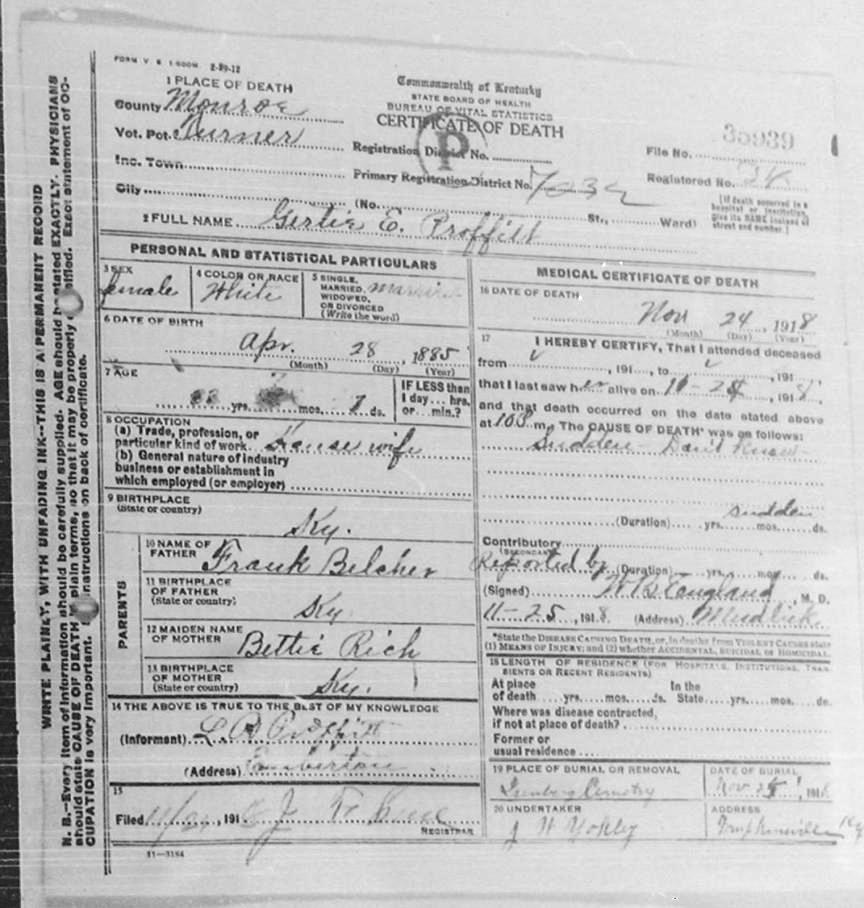 FORM V. S. 2-29-12
1 PLACE OF DEATH
County Monroe
Vot. Pct. Turner
Inc. Town
City
Commonwealth of Kentucky
STATE BOARD OF HEALTH
BUREAU OF VITAL STATISTICS
CERTIFICATE OF DEATH
P
Registration District No.
Primary Registration District No. 7032
(No. St., Ward)
35939
File No.
Registered No.
[If death occurred in a
hospital or institution,
give its NAME instead of
street and number.]
2 FULL NAME Gertie E. Proffitt
PERSONAL AND STATISTICAL PARTICULARS
3 SEX
female
4 COLOR OR RACE
White
5 SINGLE,
MARRIED,
WIDOWED,
OR DIVORCED
(Write the word)
married
6 DATE OF BIRTH
Apr. 28, 1885
(Month) (Day) (Year)
7 AGE
yrs. mos. ds.
IF LESS than
1 day... hrs.
or... min.?
8 OCCUPATION
(a) Trade, profession, or
particular kind of work. House wife
(b) General nature of industry
business or establishment in
which employed (or employer)
9 BIRTHPLACE
(State or country)
Ky.
PARENTS
10 NAME OF
FATHER Frank Belcher
11 BIRTHPLACE
OF FATHER
(State or country)
Ky
12 MAIDEN NAME
OF MOTHER Bettie Rich
13 BIRTHPLACE
OF MOTHER
(State or country) Ky.
14 THE ABOVE IS TRUE TO THE BEST OF MY KNOWLEDGE
(Informant) Proffitt
(Address) Emberton
15
Filed 191
REGISTRAR
11-3184
MEDICAL CERTIFICATE OF DEATH
16 DATE OF DEATH
Nov 24, 1918
(Month) (Day) (Year)
17 I HEREBY CERTIFY, That I attended deceased
from , 191 , to , 191
that I last saw her alive on 11-24, 1918,
and that death occurred on the date stated above
at m. The CAUSE OF DEATH* was as follows:
Sudden
sudden
(Duration) yrs. mos. ds.
Contributory
(SECONDARY)
Reported by (Duration) yrs. mos. ds.
(Signed) England, M. D.
11-25, 1918. (Address) Mudlick
*State the DISEASE CAUSING DEATH, or, in deaths from VIOLENT CAUSES state
(1) MEANS OF INJURY; and (2) whether ACCIDENTAL, SUICIDAL or HOMICIDAL.
18 LENGTH OF RESIDENCE (FOR HOSPITALS, INSTITUTIONS, TRAN-
SIENTS OR RECENT RESIDENTS)
At place In the
of death yrs. mos. ds. State yrs. mos. ds.
Where was disease contracted,
if not at place of death?
Former or
usual residence
19 PLACE OF BURIAL OR REMOVAL
Cemetery
DATE OF BURIAL
Nov 25, 1918
20 UNDERTAKER
J W Yokley
ADDRESS
Tompkinsville Ky
WRITE PLAINLY, WITH UNFADING INK--THIS IS A PERMANENT RECORD
N. B.--Every item of information should be carefully supplied. AGE should be stated EXACTLY. PHYSICIANS
should state CAUSE OF DEATH in plain terms, so that it may be properly classified. Exact statement of OC-
CUPATION is very important. instructions on back of certificate.